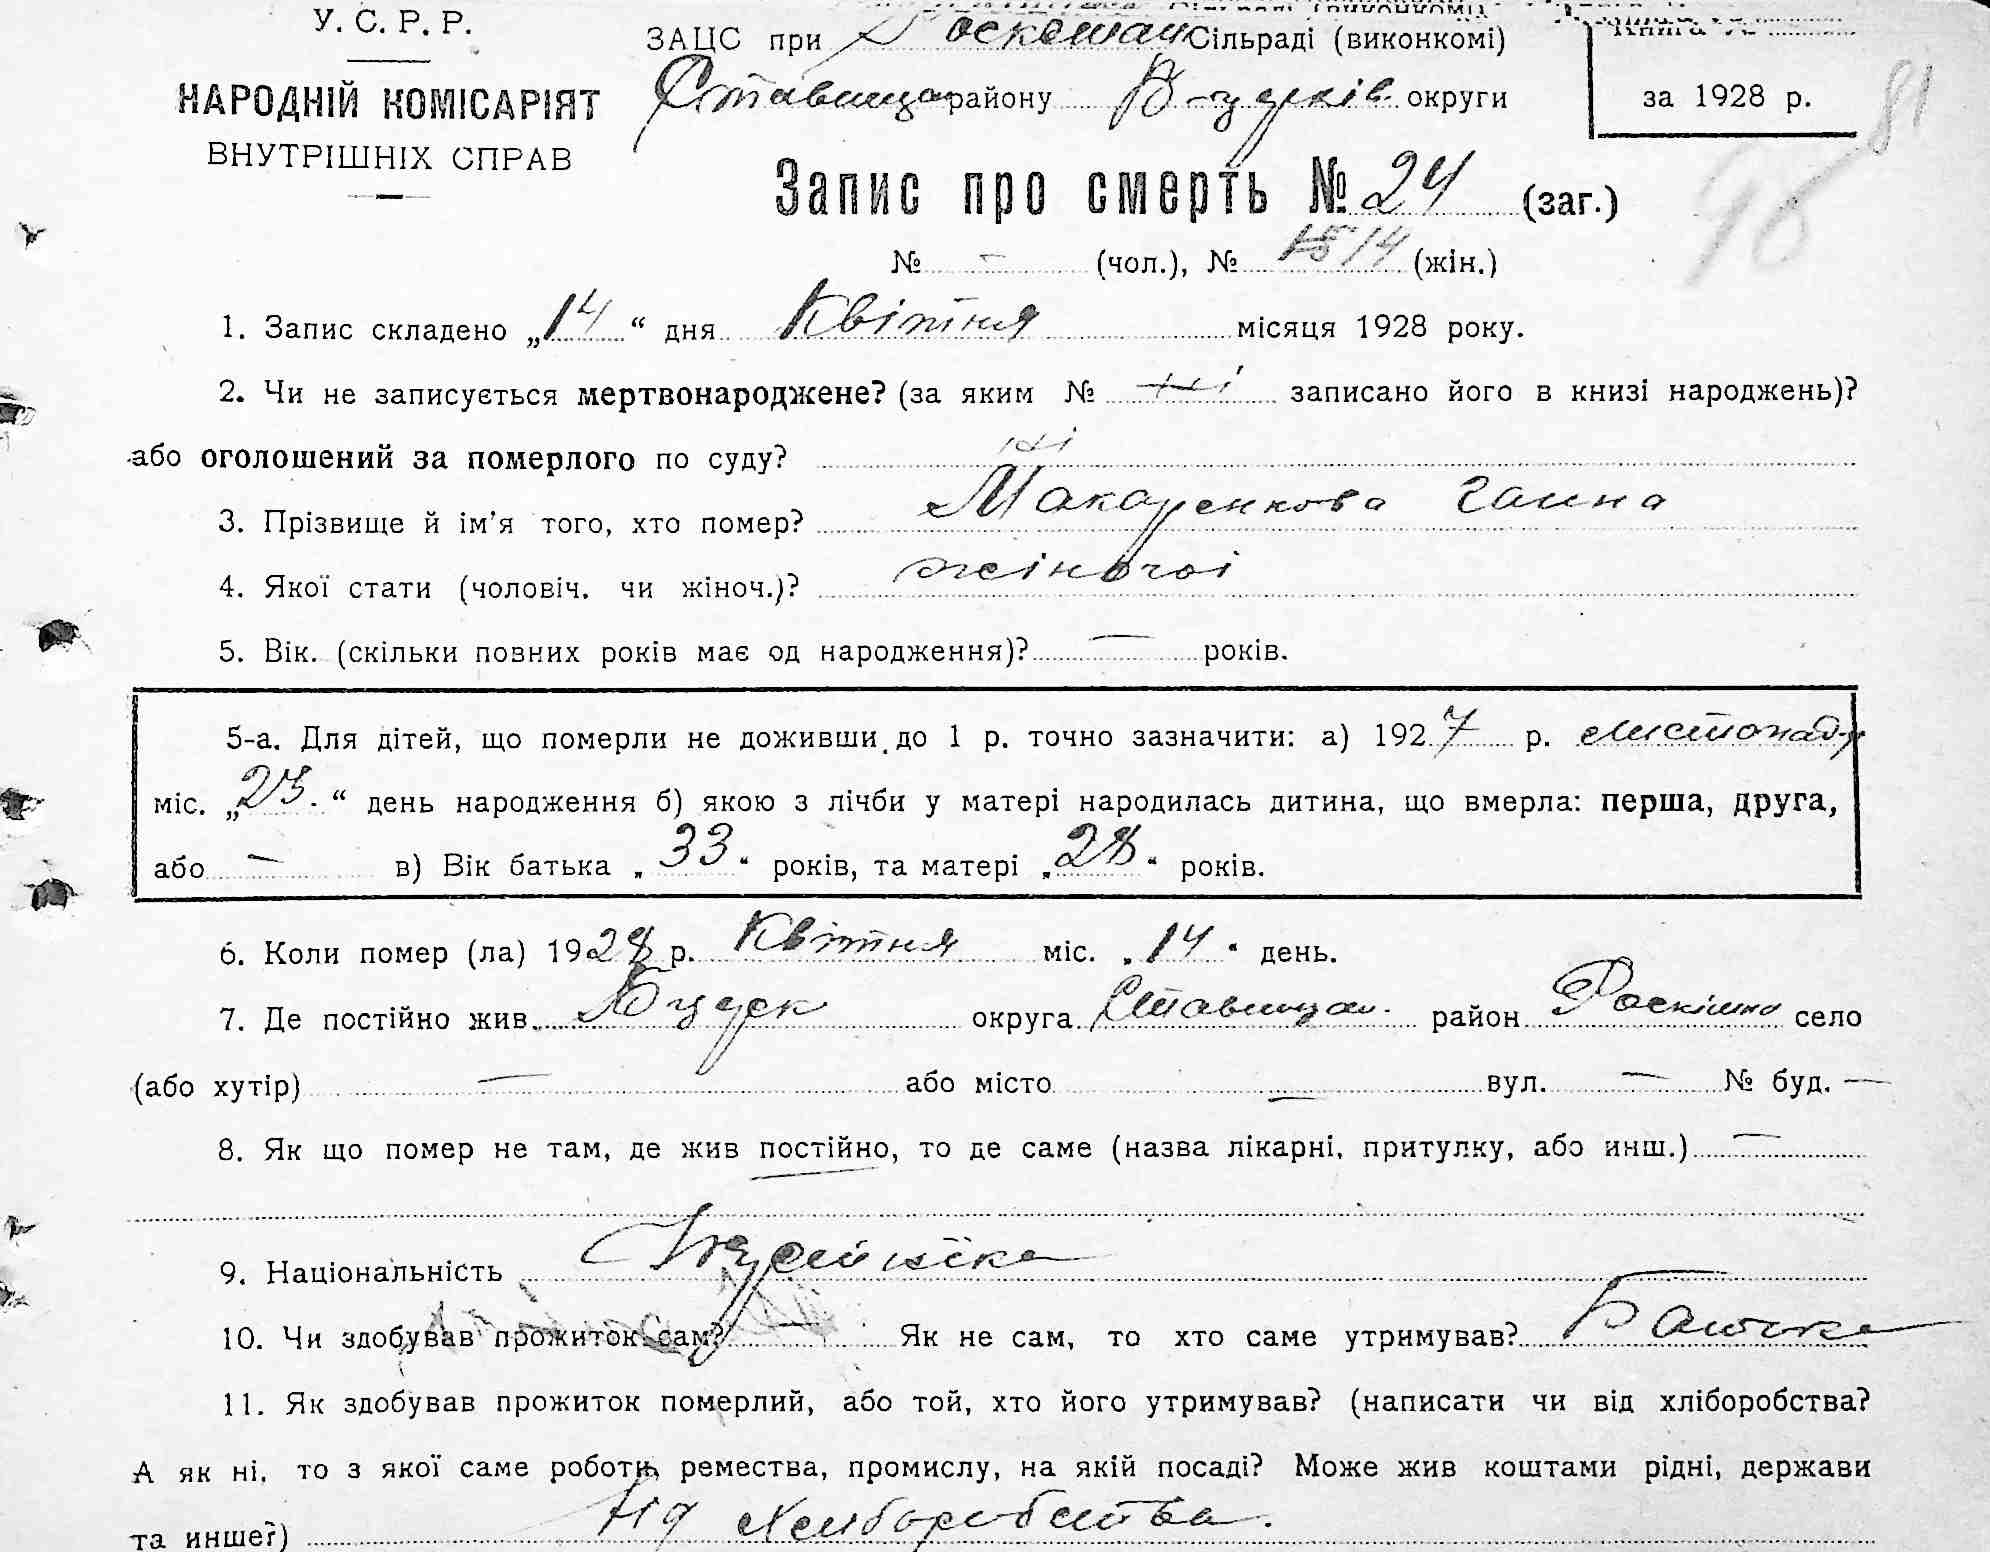 У. С. Р. Р.
НАРОДНІЙ КОМІСАРІЯТ
ВНУТРІШНІХ СПРАВ
ЗАЦС при Сільраді (виконкомі)
Ставищан району округи
за 1928 р.
81
96
Запис про смерть № 24 (заг.)
№ — (чол.), № 15 14 (жін.)
1. Запис складено „14“ дня Квітня місяця 1928 року.
2. Чи не записується мертвонароджене? (за яким № ні записано його в книзі народжень)?
або оголошений за померлого по суду? ні
3. Прізвище й ім’я того, хто помер? Макаренкова Ганна
4. Якої стати (чоловіч. чи жіноч.)? жіночоі
5. Вік. (скільки повних років має од народження)? — років.
5-а. Для дітей, що померли не доживши до 1 р. точно зазначити: а) 1927 р. листопаду
міс. „23.“ день народження б) якою з лічби у матері народилась дитина, що вмерла: перша, друга,
або — в) Вік батька „33“ років, та матері „28“ років.
6. Коли помер (ла) 1928 р. Квітня міс. „14“ день.
7. Де постійно жив Бцерк округа Ставищан. район Роскішно село
(або хутір) — або місто — вул. — № буд. —
8. Як що помер не там, де жив постійно, то де саме (назва лікарні, притулку, або инш.) —
9. Національність
10. Чи здобував прожиток сам? — Як не сам, то хто саме утримував? Батько
11. Як здобував прожиток померлий, або той, хто його утримував? (написати чи від хліборобства?
А як ні, то з якої саме роботи, ремества, промислу, на якій посаді? Може жив коштами рідні, держави
та инше?) Від хліборобства.